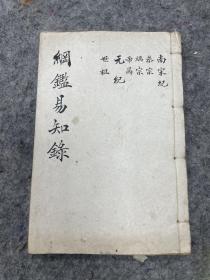 南宋紀
恭宗
端宗
帝昺
元紀
世祖
綱鑑易知錄